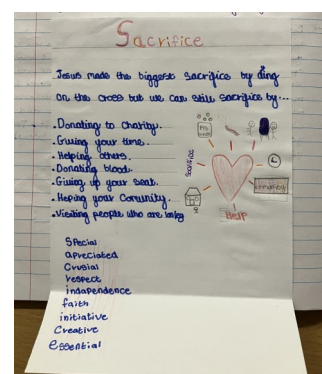 Sacrifice
Jesus made the biggest sacrifice by ding
on the cross but we can still sacrifice by...
. Donating to charity.
. Giving your time.
. Helping others.
. Donating blood.
. Giving up your seat.
. Heping your Comunity.
. Visiting people who are lonley
Sacrifice
Help
Special
apreciated
Crusial
respect
indapendence
faith
initiative
Creative
essential